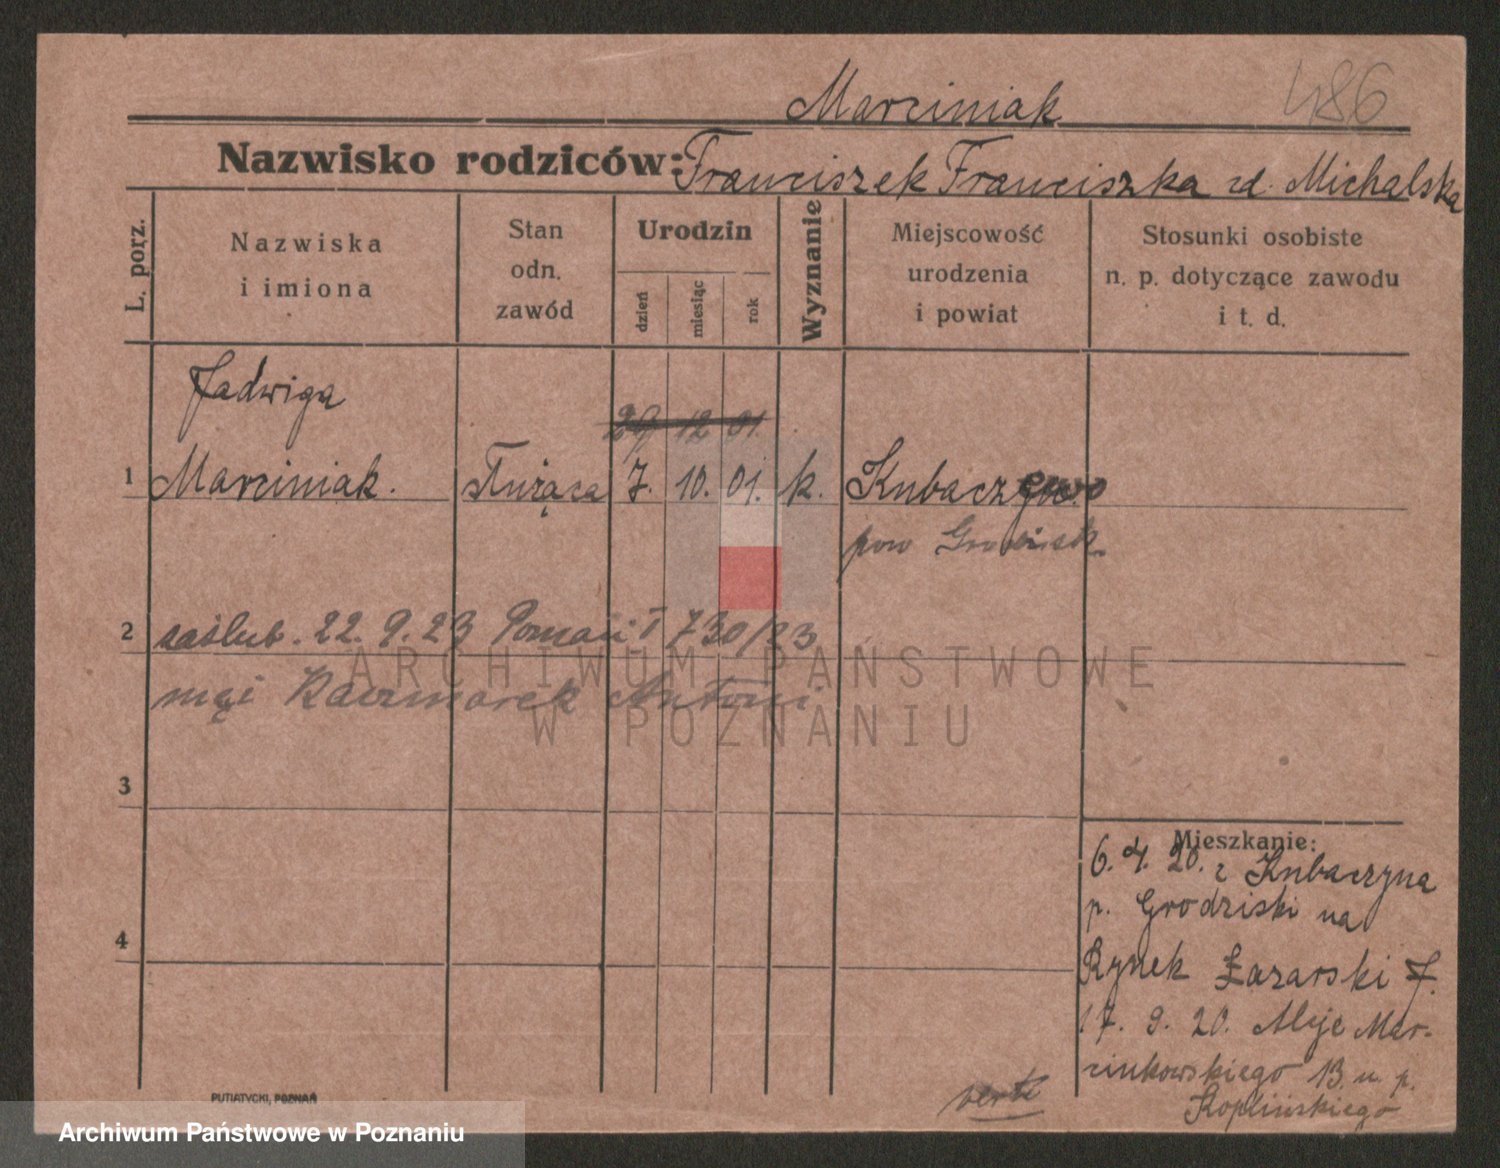 Marciniak
486
Nazwisko rodziców: Franciszek Franciszka zd. Michalska
L. porz.
Nazwiska
i imiona
Stan
odn.
zawód
Urodzin
dzień
miesiąc
rok
Wyznanie
Miejscowość
urodzenia
i powiat
Stosunki osobiste
n. p. dotyczące zawodu
i t. d.
Jadwiga
29 12 01.
1 Marciniak. służąca 7. 10. 01. k.
pow Grodzisk
2 zaślub. 22. 9. 23 Poznań I 730/23
mąż Kaczmarek Antoni
ARCHIWUM PAŃSTWOWE
W POZNANIU
3
4
Mieszkanie:
6. 4. 20. z Kubaczyna
p. Grodziski na
Rynek Łazarski 7.
17. 9. 20. Aleje Mar-
cinkowskiego 13 u. p.
Koplińskiego
verte
PUTIATYCKI, POZNAŃ
Archiwum Państwowe w Poznaniu